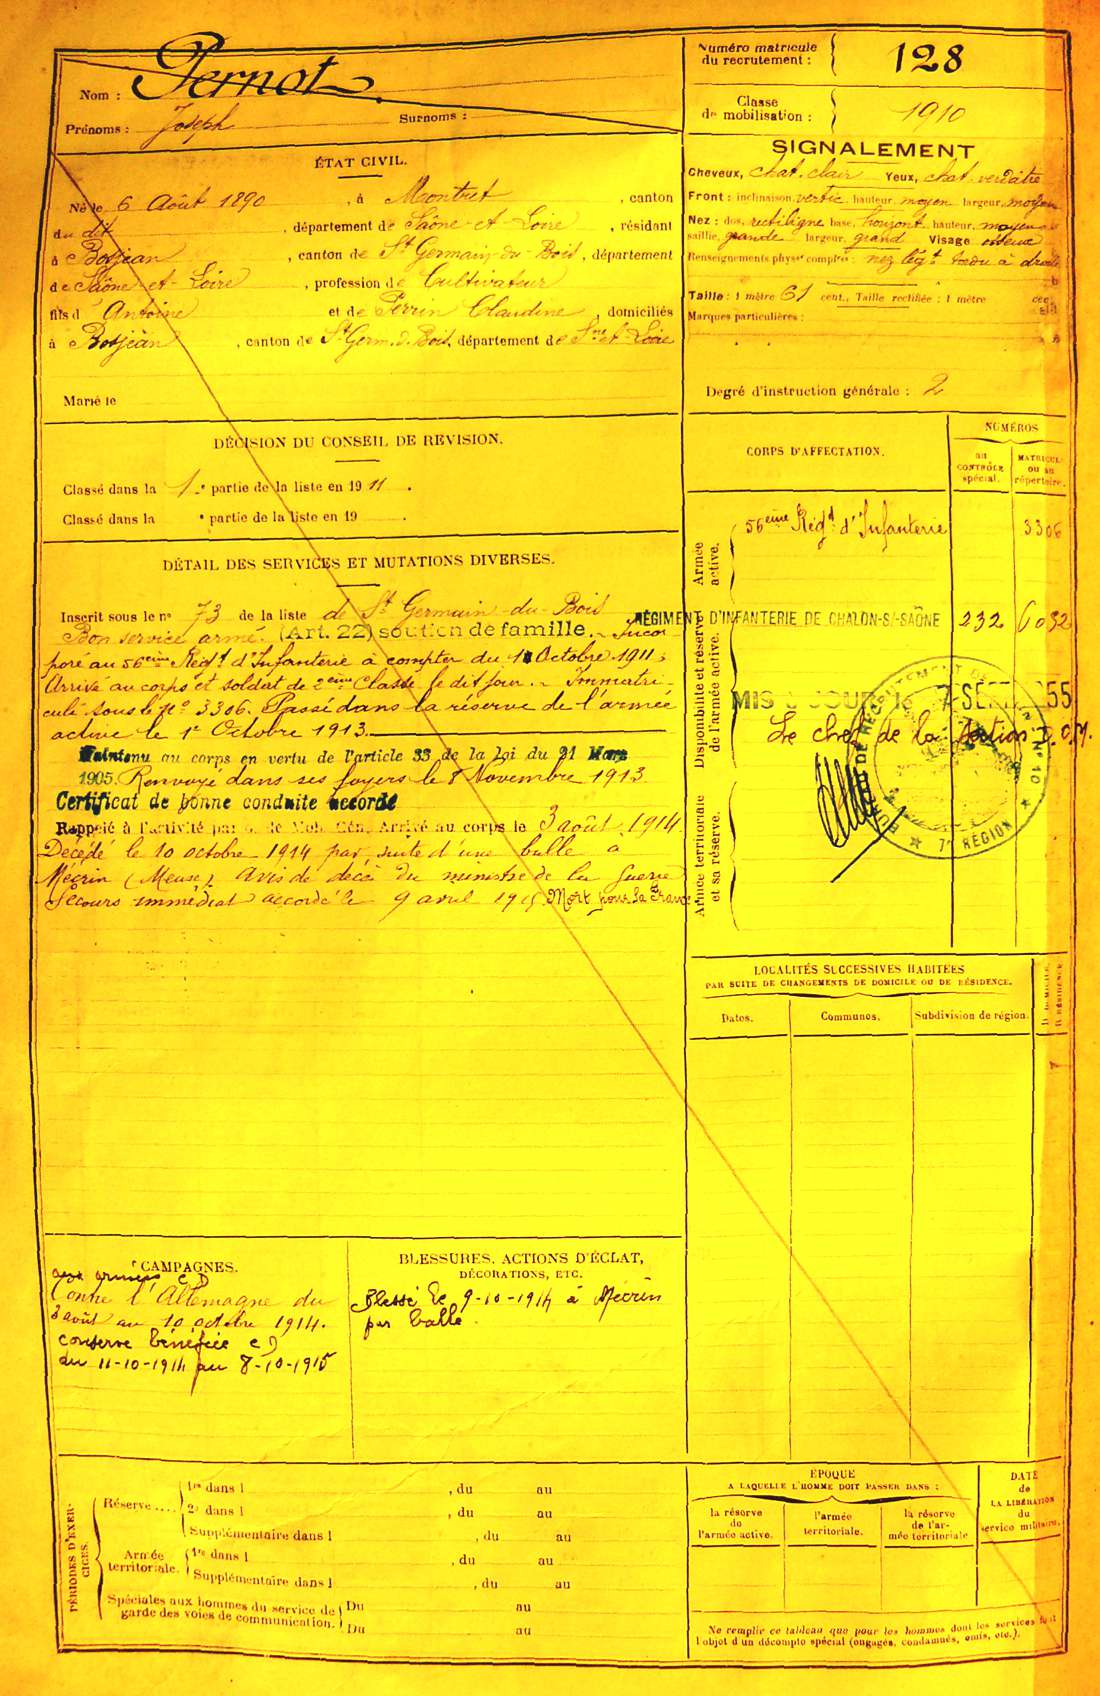 Nom : Pernot.
Prénoms : Joseph Surnoms :
ÉTAT CIVIL.
Né le 6 Août 1890, à Montret, canton
du dit, département de Saône-et-Loire, résidant
à Bosjean, canton de St Germain-du-Bois, département
de Saône-et-Loire, profession de Cultivateur
fils d'Antoine et de Perrin Claudine, domiciliés
à Bosjean, canton de St Germ. d. Bois, département de Sne et Loire
Marié le
DÉCISION DU CONSEIL DE REVISION.
Classé dans la 1e partie de la liste en 1911.
Classé dans la e partie de la liste en 19
DÉTAIL DES SERVICES ET MUTATIONS DIVERSES.
Inscrit sous le no 73 de la liste de St Germain-du-Bois
Bon service armé. (Art. 22) soutien de famille. Incor-
poré au 56ème Régt d'Infanterie à compter du 1 Octobre 1911;
Arrivé au corps et soldat de 2ème Classe le dit jour. Immatri-
culé sous le No 3306. Passé dans la réserve de l'armée
active le 1er Octobre 1913.
Maintenu au corps en vertu de l'article 33 de la Loi du 21 Mars
1905. Renvoyé dans ses foyers le 8 Novembre 1913.
Certificat de bonne conduite accordé
Rappelé à l'activité par o. de Mob. Gén. Arrivé au corps le 3 août 1914.
Décédé le 10 octobre 1914 par suite d'une balle à
Mécrin (Meuse). Avis de décès du ministre de la Guerre
Secours immédiat accordé le 9 avril 1915. Mort pour la France
CAMPAGNES.
aux armées CD
Contre l'Allemagne du
3 août au 10 octobre 1914.
conserve bénéfice CD
du 11-10-1914 au 8-10-1915
BLESSURES, ACTIONS D'ÉCLAT,
DÉCORATIONS, ETC.
Blessé le 9-10-1914 à Mécrin
par balle.
PÉRIODES D'EXERCICES.
Réserve....
1re dans l , du au
2e dans l , du au
Supplémentaire dans l , du au
Armée territoriale.
1re dans l , du au
Supplémentaire dans l , du au
Spéciales aux hommes du service de garde des voies de communication.
Du au
Du au
Numéro matricule
du recrutement : 128
Classe
de mobilisation : 1910
SIGNALEMENT
Cheveux, chat. clair Yeux, chat. verdâtre
Front : inclinaison, vertic. hauteur, moyen largeur, moyen
Nez : dos, rectiligne base, horizont. hauteur, moyen
saillie, grande largeur, grand Visage
Renseignements physes compl res : nez légt tordu à droite
Taille : 1 mètre 61 cent., Taille rectifiée : 1 mètre cent.
Marques particulières :
Degré d'instruction générale : 2
CORPS D'AFFECTATION.
NUMÉROS
au
CONTRÔLE
spécial.
MATRICULE
ou au
répertoire.
Armée active.
56ème Régt d'Infanterie 3306
Disponibilité et réserve de l'armée active.
RÉGIMENT D'INFANTERIE DE CHALON-S/-SAÔNE 232 6032
MIS à JOUR le 7 SEPT 1955
Le chef de la section
BUREAU DE RECRUTEMENT DE
7e RÉGION
No 10
Armée territoriale et sa réserve.
LOCALITÉS SUCCESSIVES HABITÉES
PAR SUITE DE CHANGEMENTS DE DOMICILE OU DE RÉSIDENCE.
Dates. Communes. Subdivision de région. D. DOMICILE. R. RÉSIDENCE.
ÉPOQUE
A LAQUELLE L'HOMME DOIT PASSER DANS :
la réserve
de
l'armée active.
l'armée
territoriale.
la réserve
de l'ar-
mée territoriale
DATE
de
LA LIBÉRATION
du
service militaire.
Ne remplir ce tableau que pour les hommes dont les services font
l'objet d'un décompte spécial (engagés, condamnés, omis, etc.).